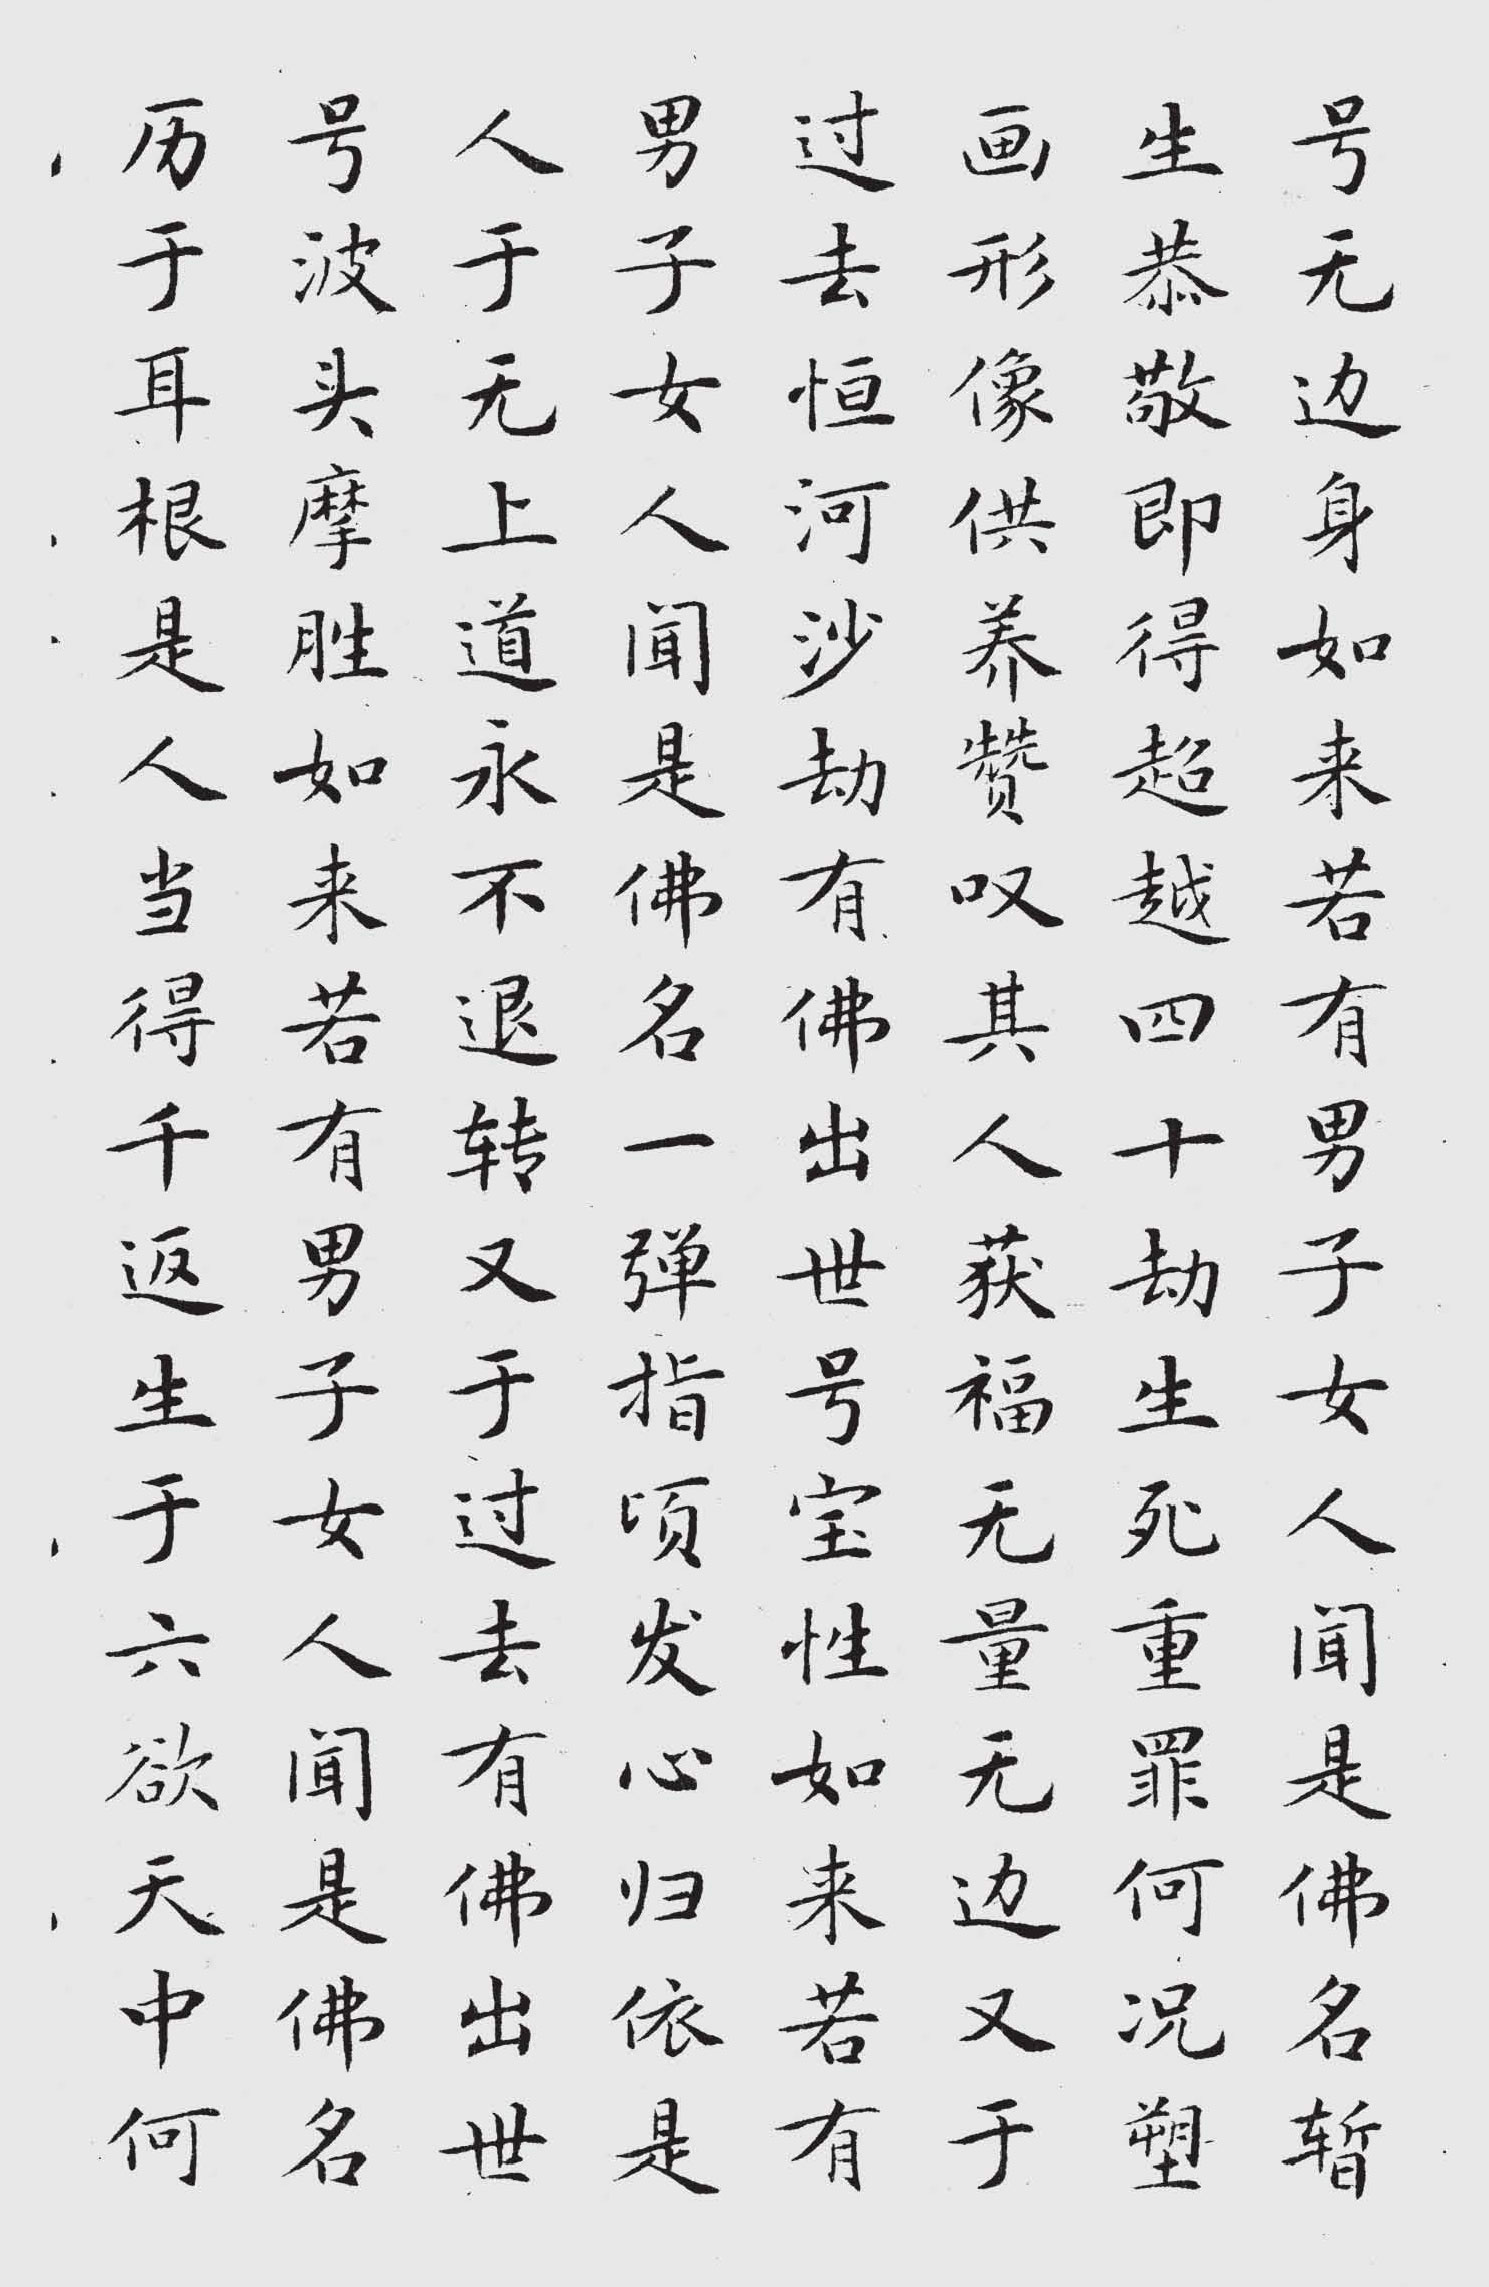 号无边身如来若有男子女人闻是佛名暂
生恭敬即得超越四十劫生死重罪何况塑
画形像供养赞叹其人获福无量无边又于
过去恒河沙劫有佛出世号宝性如来若有
男子女人闻是佛名一弹指顷发心归依是
人于无上道永不退转又于过去有佛出世
号波头摩胜如来若有男子女人闻是佛名
历于耳根是人当得千返生于六欲天中何